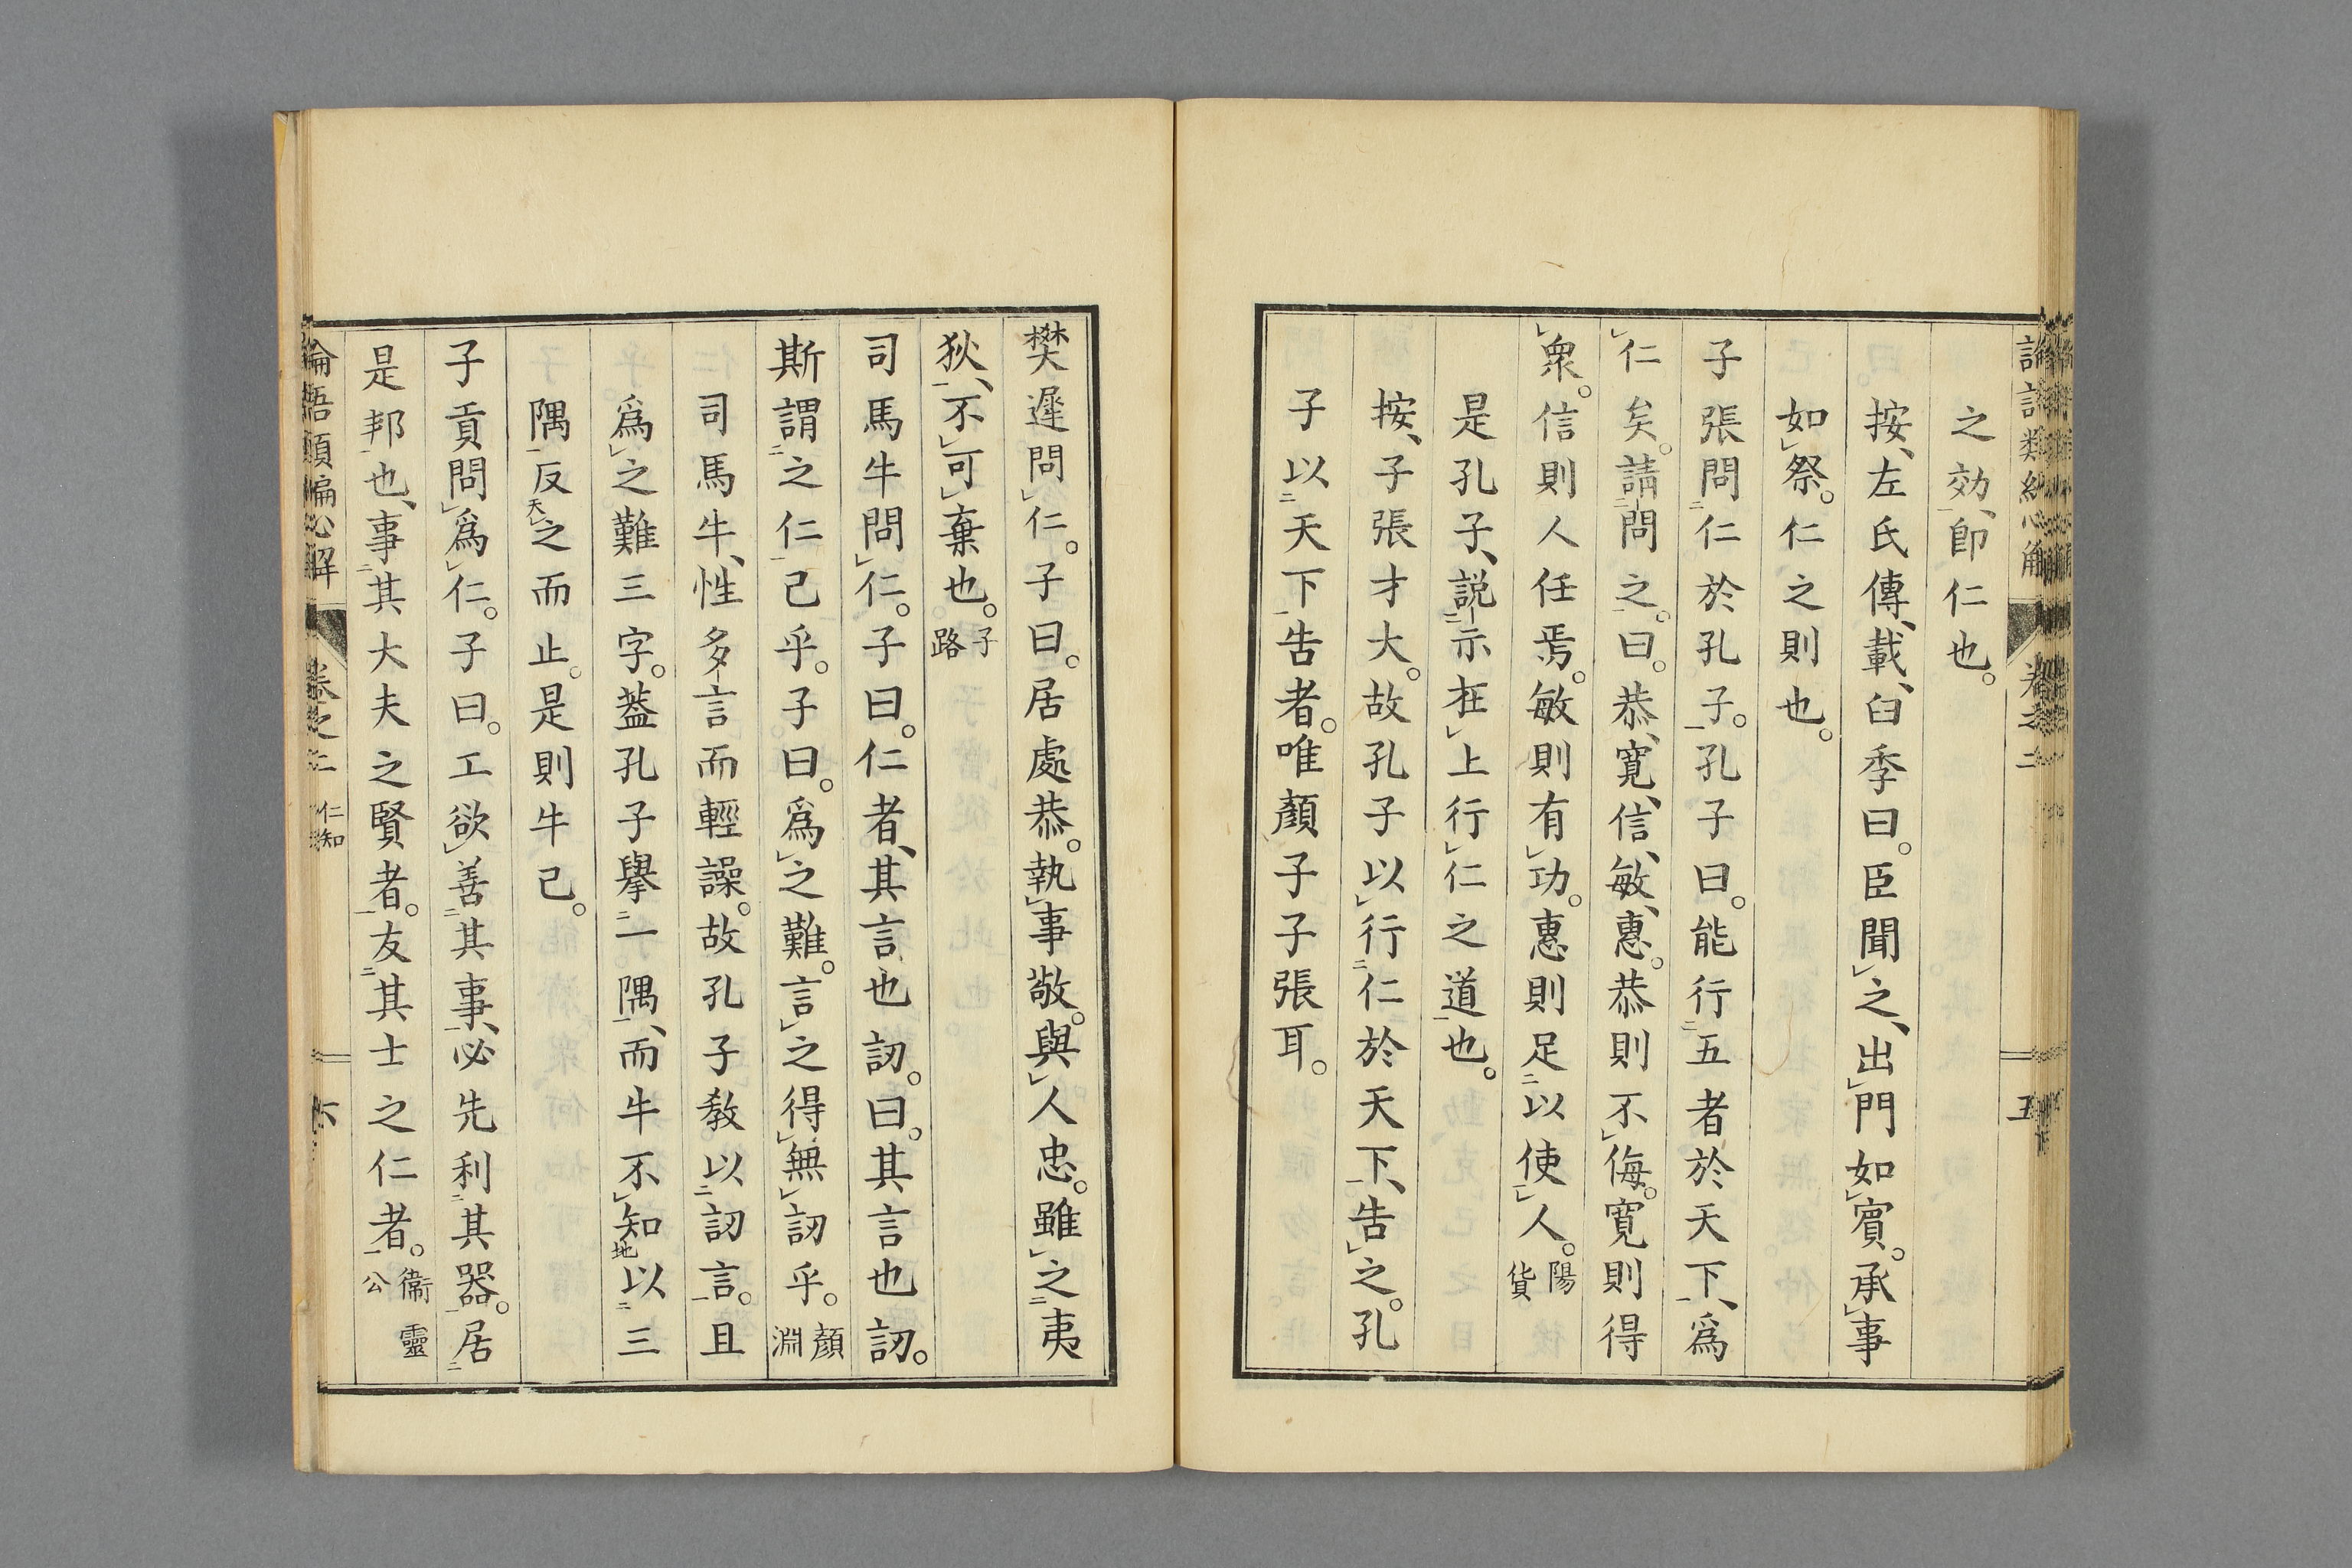 之效、卽仁也。
按、左氏傳、載、臼季曰。臣聞之、出門如賓。承事
如祭。仁之則也。
子張問仁於孔子。孔子曰。能行五者於天下、爲
仁矣。請問之。曰。恭、寬、信、敏、惠。恭則不侮。寬則得
衆。信則人任焉。敏則有功。惠則足以使人。陽貨
是孔子、説示在上行仁之道也。
按、子張才大。故孔子以行仁於天下、告之。孔
子以天下告者。唯顏子子張耳。
樊遲問仁。子曰。居處恭。執事敬。與人忠。雖之夷
狄、不可棄也。子路
司馬牛問仁。子曰。仁者、其言也訒。曰。其言也訒。
斯謂之仁已乎。子曰。爲之難。言之得無訒乎。顏淵
司馬牛、性多言而輕譟。故孔子敎以訒言。且
爲之難三字。蓋孔子擧一隅、而牛不知以三
隅反之而止。是則牛已。
子貢問爲仁。子曰。工欲善其事、必先利其器。居
是邦也、事其大夫之賢者。友其士之仁者。衞靈公
論語類編心解 卷之二 仁知 六